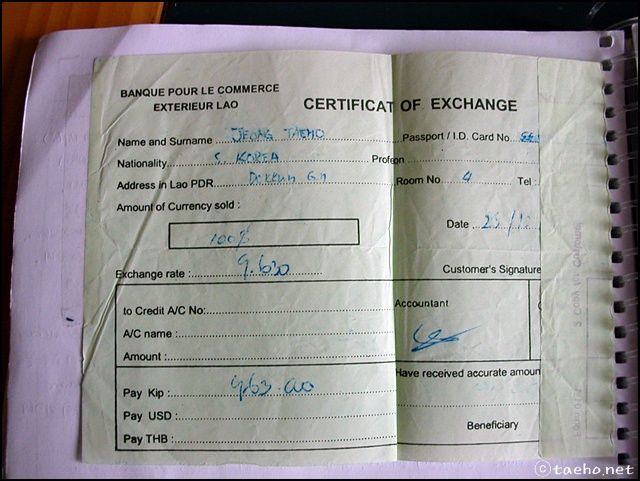 BANQUE POUR LE COMMERCE
EXTERIEUR LAO
CERTIFICAT OF EXCHANGE
Name and Surname JEONG TAEHO Passport / I.D. Card No.
Nationality S. KOREA Profeon
Address in Lao PDR Room No 4 Tel :
Amount of Currency sold :
Date : 25/12
100%
Exchange rate : 9.630
Customer's Signature
to Credit A/C No: Accountant
A/C name :
Amount :
Have received accurate amoun
Pay Kip : 963.000
Pay USD :
Beneficiary
Pay THB :
© taeho.net